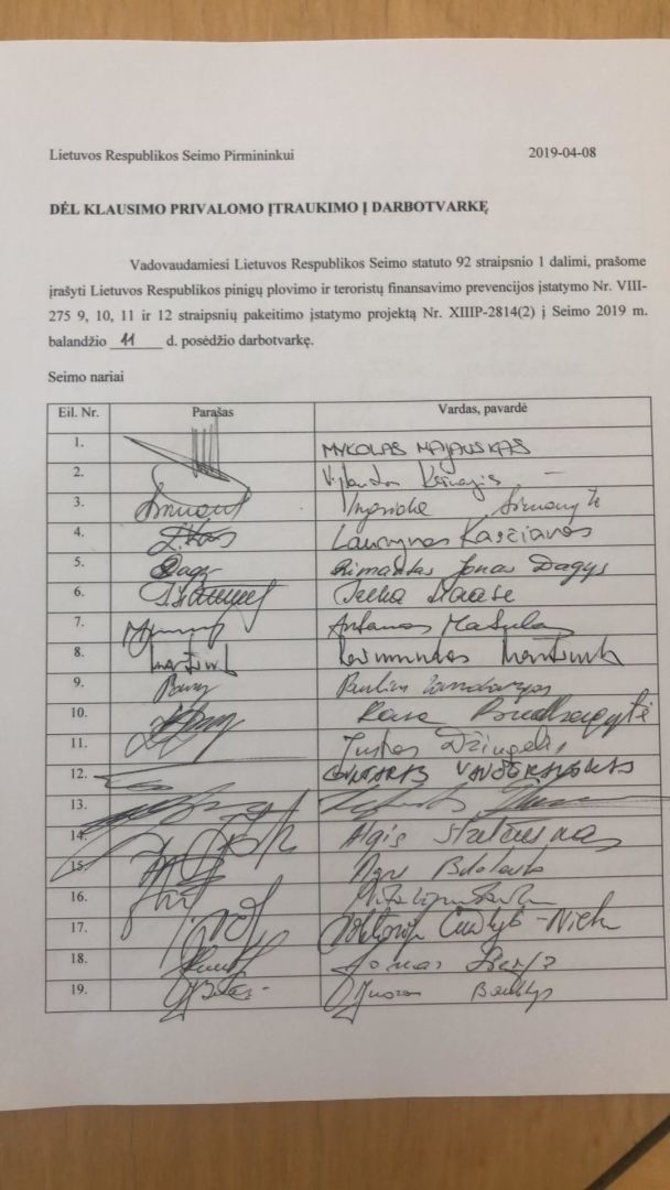 Lietuvos Respublikos Seimo Pirmininkui 2019-04-08
DĖL KLAUSIMO PRIVALOMO ĮTRAUKIMO Į DARBOTVARKĘ
Vadovaudamiesi Lietuvos Respublikos Seimo statuto 92 straipsnio 1 dalimi, prašome
įrašyti Lietuvos Respublikos pinigų plovimo ir teroristų finansavimo prevencijos įstatymo Nr. VIII-
275 9, 10, 11 ir 12 straipsnių pakeitimo įstatymo projektą Nr. XIIIP-2814(2) į Seimo 2019 m.
balandžio 11 d. posėdžio darbotvarkę.
Seimo nariai
Eil. Nr. Parašas Vardas, pavardė
1. MYKOLAS MAJAUSKAS
2.
3. Ingrida Šimonytė
4. Laurynas Kasčiūnas
5. Rimantas Jonas Dagys
6. Irena Haase
7. Antanas Matulas
8. Raimundas Martinėlis
9. Paulius
10. Rasa Budbergytė
11. Justas Džiugelis
12. GINTARAS VAIČEKAUSKAS
13.
14. Algis Strelčiūnas
15. Agnė Bilotaitė
16.
17. Viktorija Čmilytė-Nielsen
18. Jonas
19. Juozas